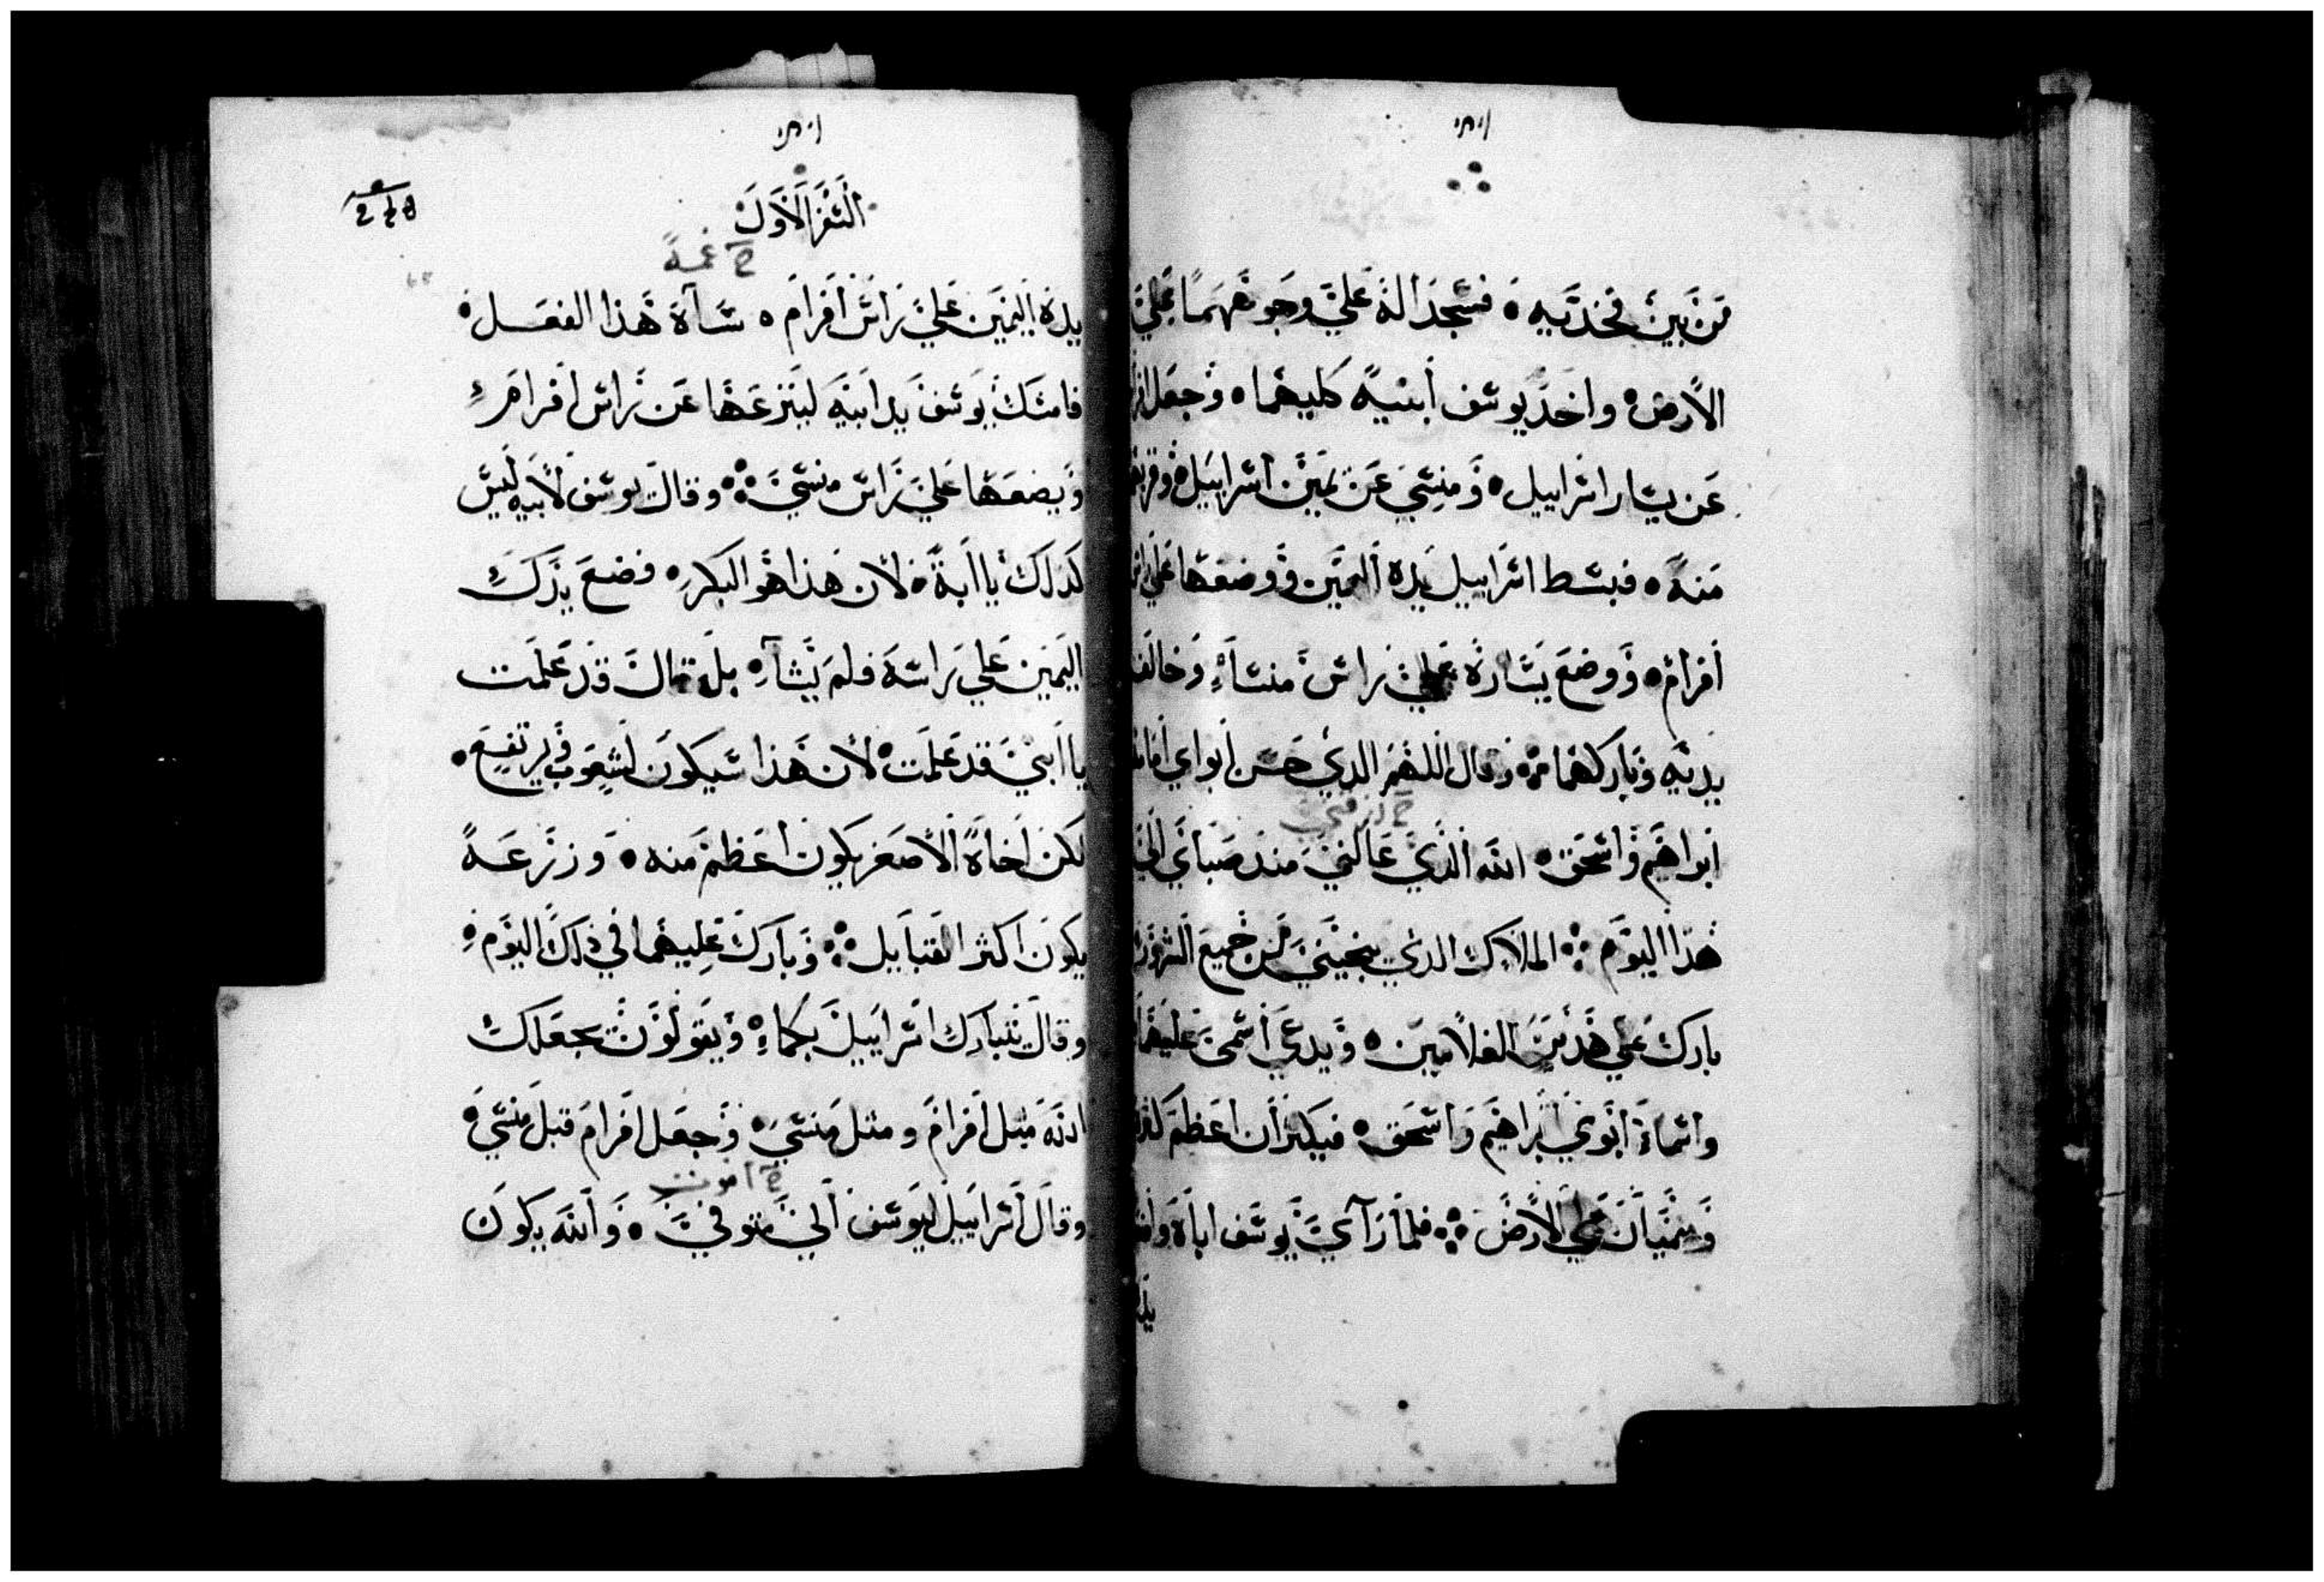 من بين فخدتيه ۰ فسجدا له علي وجوههما علي
الارض ۰ واخد يوسف ابنيه كليهما ۰ وجعل
عن يسار اسراييل ۰ ومنسي عن يمين اسراييل ۰
منه ۰ فبسط اسراييل يده اليمين ووضعها علي
افرام ۰ ووضع يساره علي راس منساء وخالف
يديه وباركهما ܀ وقال اللهم الدي حسن ابواي
ابراهيم واسحق ۰ الله الذي عالني مند صباي الي
هذا اليوم ܀ الملاك الدي ينجيني من جميع الشرور
بارك علي هدين الغلامين ۰ ويدعي اسمي عليهما
واسماء ابوي ابراهيم واسحق ۰ فيكثران اعظم كثرة
وينميان علي الارض ܀ فلما راي يوسف اباه
السفر الاول
ح غمه
يده اليمين علي راس افرام ۰ ساه هذا الفعل ۰
فامسك يوسف يد ابيه لينزعها عن راس افرام
ويضعها علي راس منسي ܀ وقال يوسف لابيه ليس
كدلك يا ابة ۰ لان هذا هو البكر ۰ فضع يدك
اليمين علي راسه فلم يشاء ۰ بل قال قد علمت
يا ابني قد علمت ۰ لان هذا سيكون لشعوب ويرتفع ۰
لكن اخاه الاصغر يكون اعظم منه ۰ وزرعه
يكون اكثر القبايل ܀ وبارك عليهما في ذلك اليوم ۰
وقال يتبارك اسراييل بكما ۰ ويقولون يجعلك
الله مثل افرام ومثل منسي ۰ وجعل افرام قبل منسي ۰
ح اموت
وقال اسراييل ليوسف اني متوفي ۰ والله يكون